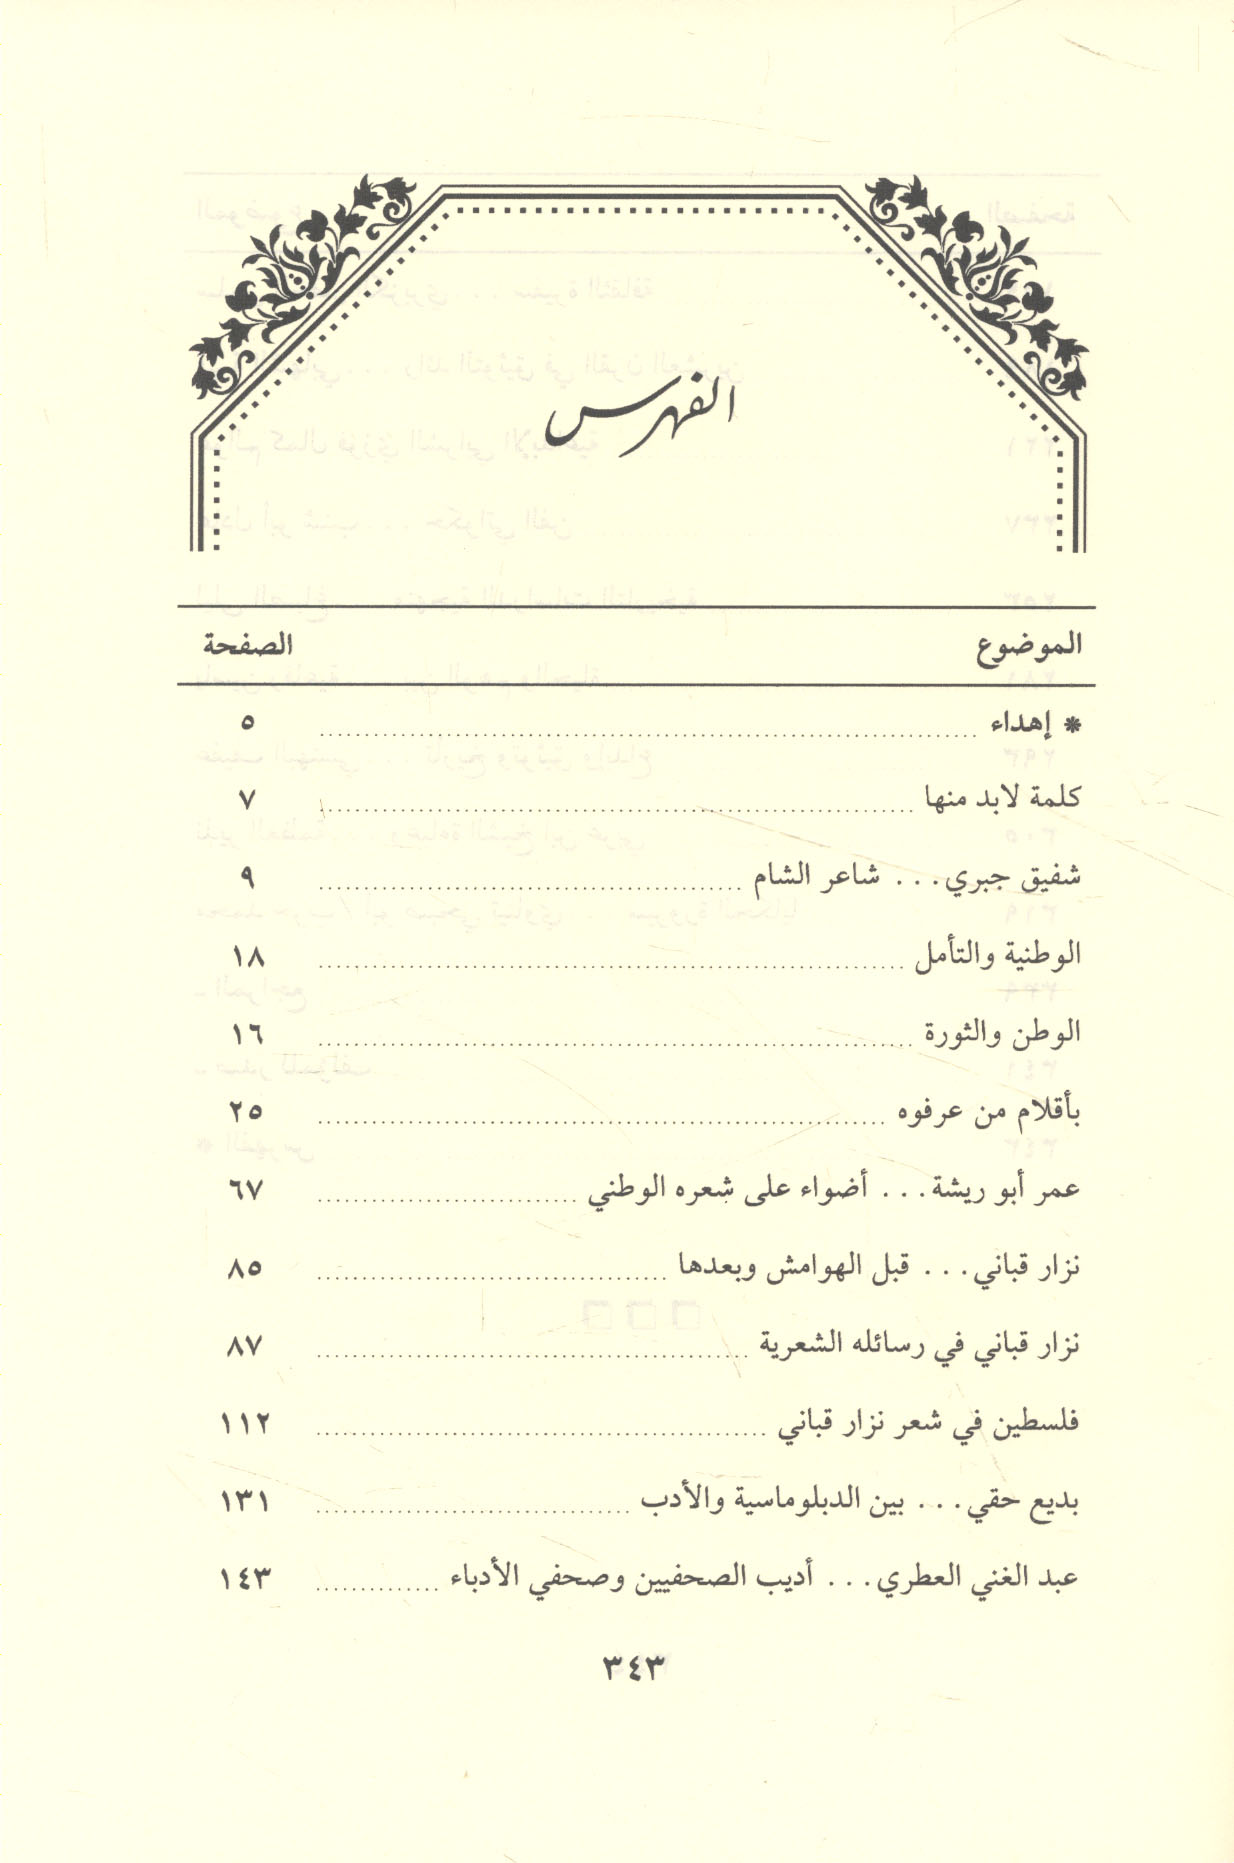 الفهرس
الموضوع الصفحة
* إهداء ........ ٥
كلمة لابد منها ........ ٧
شفيق جبري... شاعر الشام ........ ٩
الوطنية والتأمل ........ ١٨
الوطن والثورة ........ ١٦
بأقلام من عرفوه ........ ٢٥
عمر أبو ريشة... أضواء على شعره الوطني ........ ٦٧
نزار قباني... قبل الهوامش وبعدها ........ ٨٥
نزار قباني في رسائله الشعرية ........ ٨٧
فلسطين في شعر نزار قباني ........ ١١٢
بديع حقي... بين الدبلوماسية والأدب ........ ١٣١
عبد الغني العطري... أديب الصحفيين وصحفي الأدباء ........ ١٤٣
٣٤٣